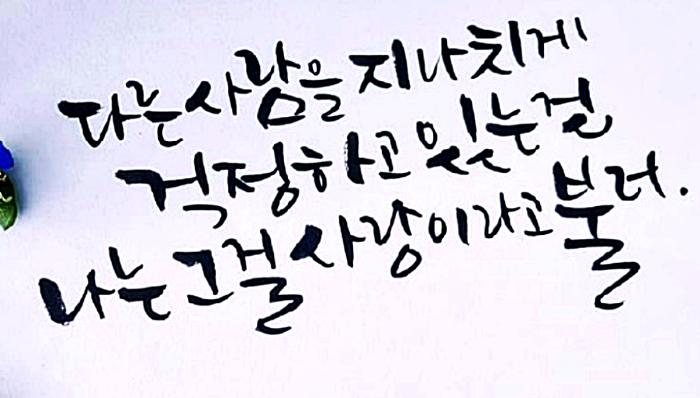 다른 사람을 지나치게
걱정하고 있는 걸
나는 그걸 사랑이라고 불러.